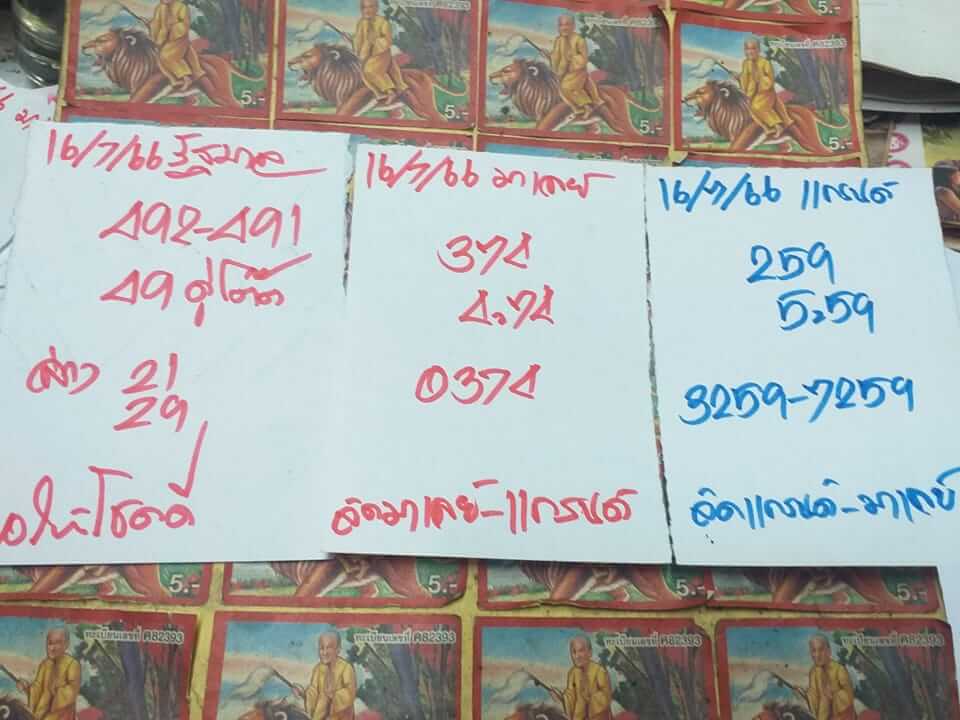 5.-
5.-
5.-
ทะเบียนเลขที่ ค82393
5.-
16/7/66 รัฐบาล
492-491
49 คู่โต๊ด
ล่าง 21
29
ขอให้โชคดี
16/7/66 มาเลย์
374
4.74
0374
คิดมาเลย์-แกรนด์
16/7/66 แกรนด์
259
5.59
3259-7259
คิดแกรนด์-มาเลย์
5.-
5.-
5.-
ทะเบียนเลขที่ ค82393
ทะเบียนเลขที่ ค82393
ทะเบียนเลขที่ ค82393
ทะเบียนเลขที่ ค82393